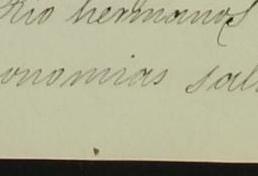 Rio hermanos
onomias sal